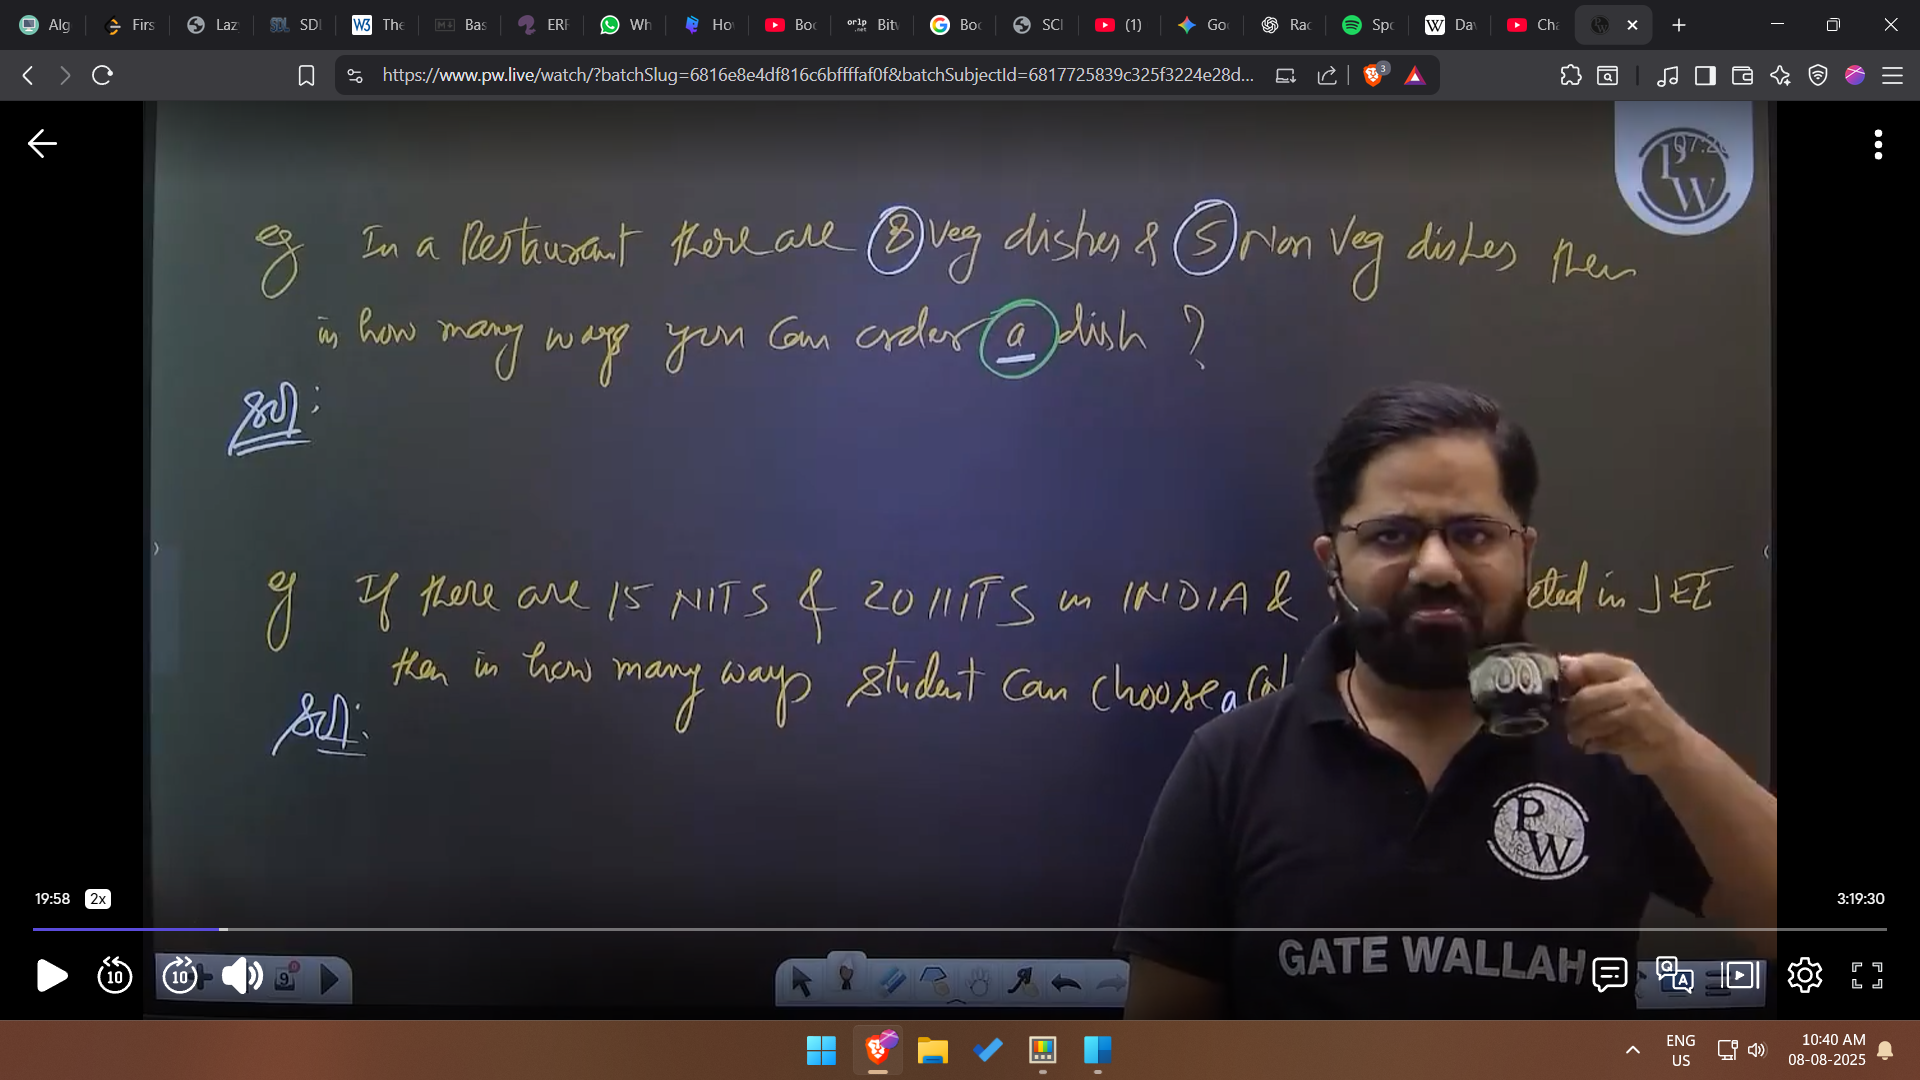 Alg
Firs
Laz
SDI
The
Bas
ERF
Wh
Hov
Boc
Bitv
Boc
SCI
(1)
Goo
Rac
Spo
Dav
Cha
https://www.pw.live/watch/?batchSlug=6816e8e4df816c6bffffaf0f&batchSubjectId=6817725839c325f3224e28d...
3
07:2
PW
eg In a Restaurant there are 8 Veg dishes & 5 Non Veg dishes then
in how many ways you can order a dish ?
Sol:
eg If there are 15 NITS & 20 IIITS in INDIA & cted in JEE
then in how many ways student can choose a Col
Sol:
PW
GATE WALLAH
19:58 2x
3:19:30
10
10
9
Q A
ENG
US
10:40 AM
08-08-2025